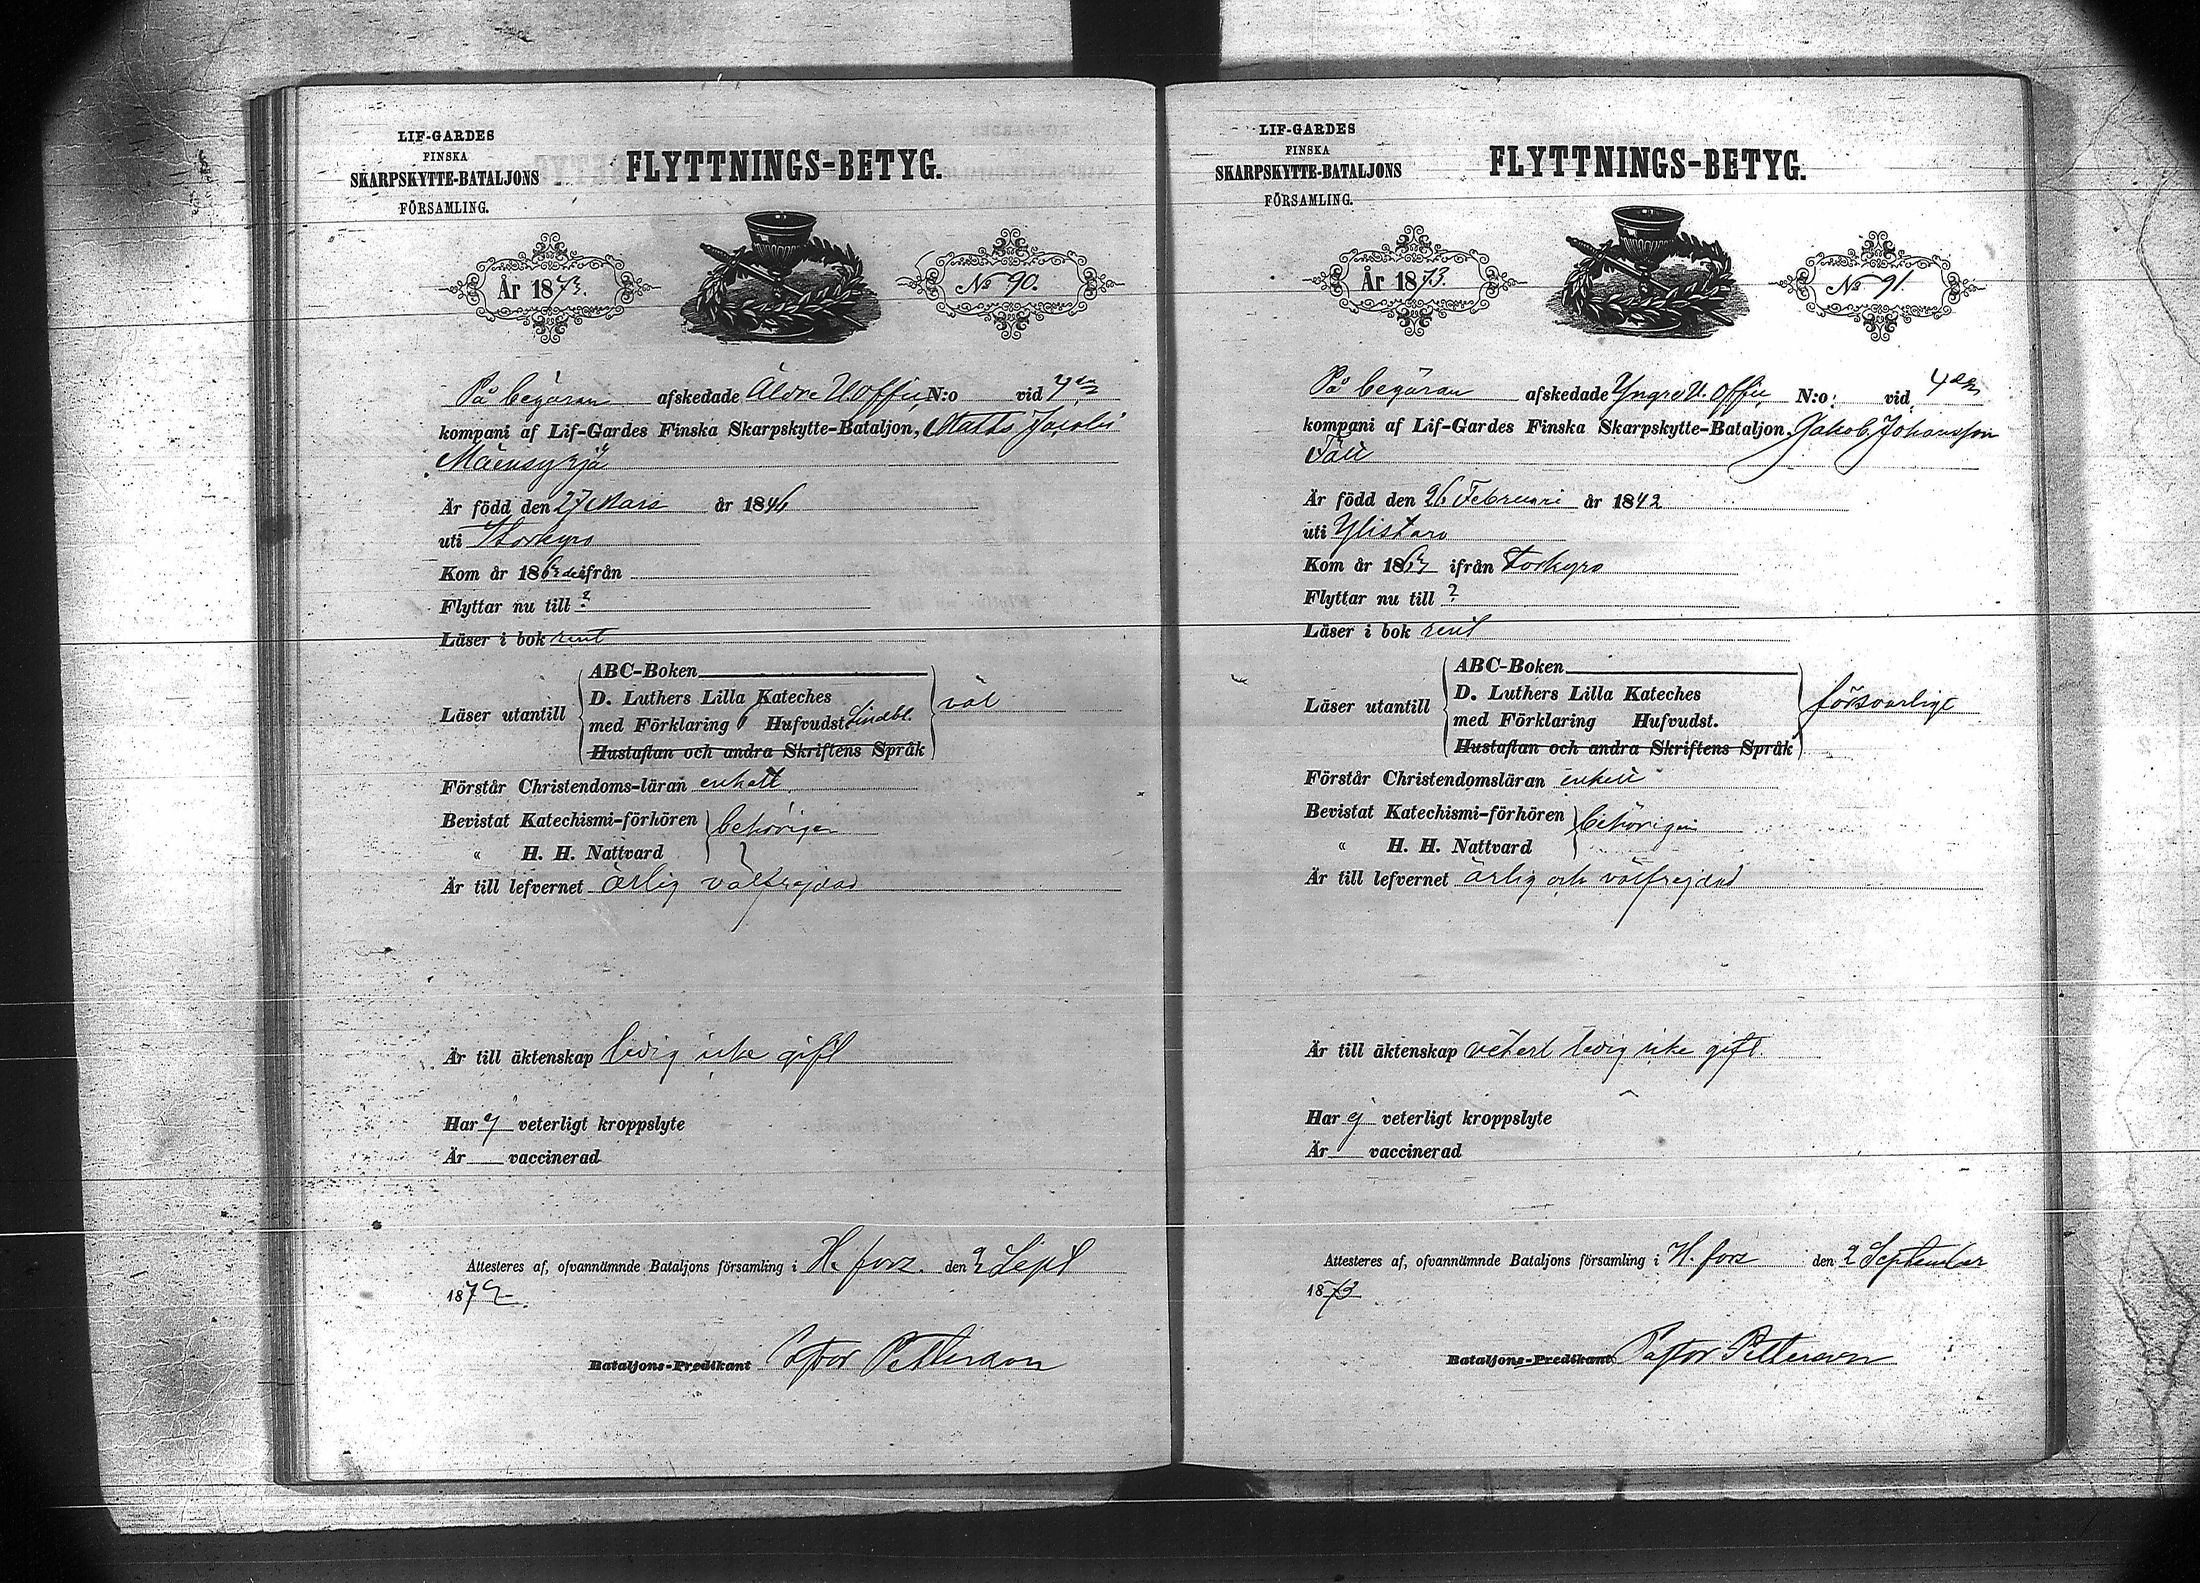 LIF-GARDES
FINSKA
SKARPSKYTTE-BATALJONS
FÖRSAMLING.
FLYTTNINGS-BETYG.
År 1873.
No 90.
På begäran afskedade Äldre U.offic. N:o vid 4de
kompani af Lif-Gardes Finska Skarpskytte-Bataljon, Matts Jacobi
Mäensyrjä
Är född den 27 Mars år 1846
uti Storkyro
Kom år 186 ifrån
Flyttar nu till ?
Läser i bok rent
ABC-Boken
D. Luthers Lilla Kateches
Läser utantill med Förklaring Hufvudst. Lindbl. väl
Hustaflan och andra Skriftens Språk
Förstår Christendoms-läran enkelt
Bevistat Katechismi-förhören behörigen
« H. H. Nattvard
Är till lefvernet ärlig välfrejdad
Är till äktenskap ledig icke gift
Har ej veterligt kroppslyte
Är vaccinerad
Attesteres af, ofvannämnde Bataljons församling i H. fors. den 2 Sept
187
Bataljons-Predikant Pastor Petterson
LIF-GARDES
FINSKA
SKARPSKYTTE-BATALJONS
FÖRSAMLING.
FLYTTNINGS-BETYG.
År 1873.
No 91.
På begäran afskedade Yngre U. offic. N:o vid 4de
kompani af Lif-Gardes Finska Skarpskytte-Bataljon, Jakob Johansson
Är född den 26 Februari år 1842
uti Ylistaro
Kom år 186 ifrån Storkyro
Flyttar nu till ?
Läser i bok rent
ABC-Boken
D. Luthers Lilla Kateches
Läser utantill med Förklaring Hufvudst. försvarligt
Hustaflan och andra Skriftens Språk
Förstår Christendomsläran enkelt
Bevistat Katechismi-förhören behörigen
« H. H. Nattvard
Är till lefvernet ärlig och välfrejdad
Är till äktenskap veterl ledig icke gift.
Har ej veterligt kroppslyte
Är vaccinerad
Attesteres af, ofvannämnde Bataljons församling i H. fors den 2 September
1873
Bataljons-Predikant Pastor Petterson